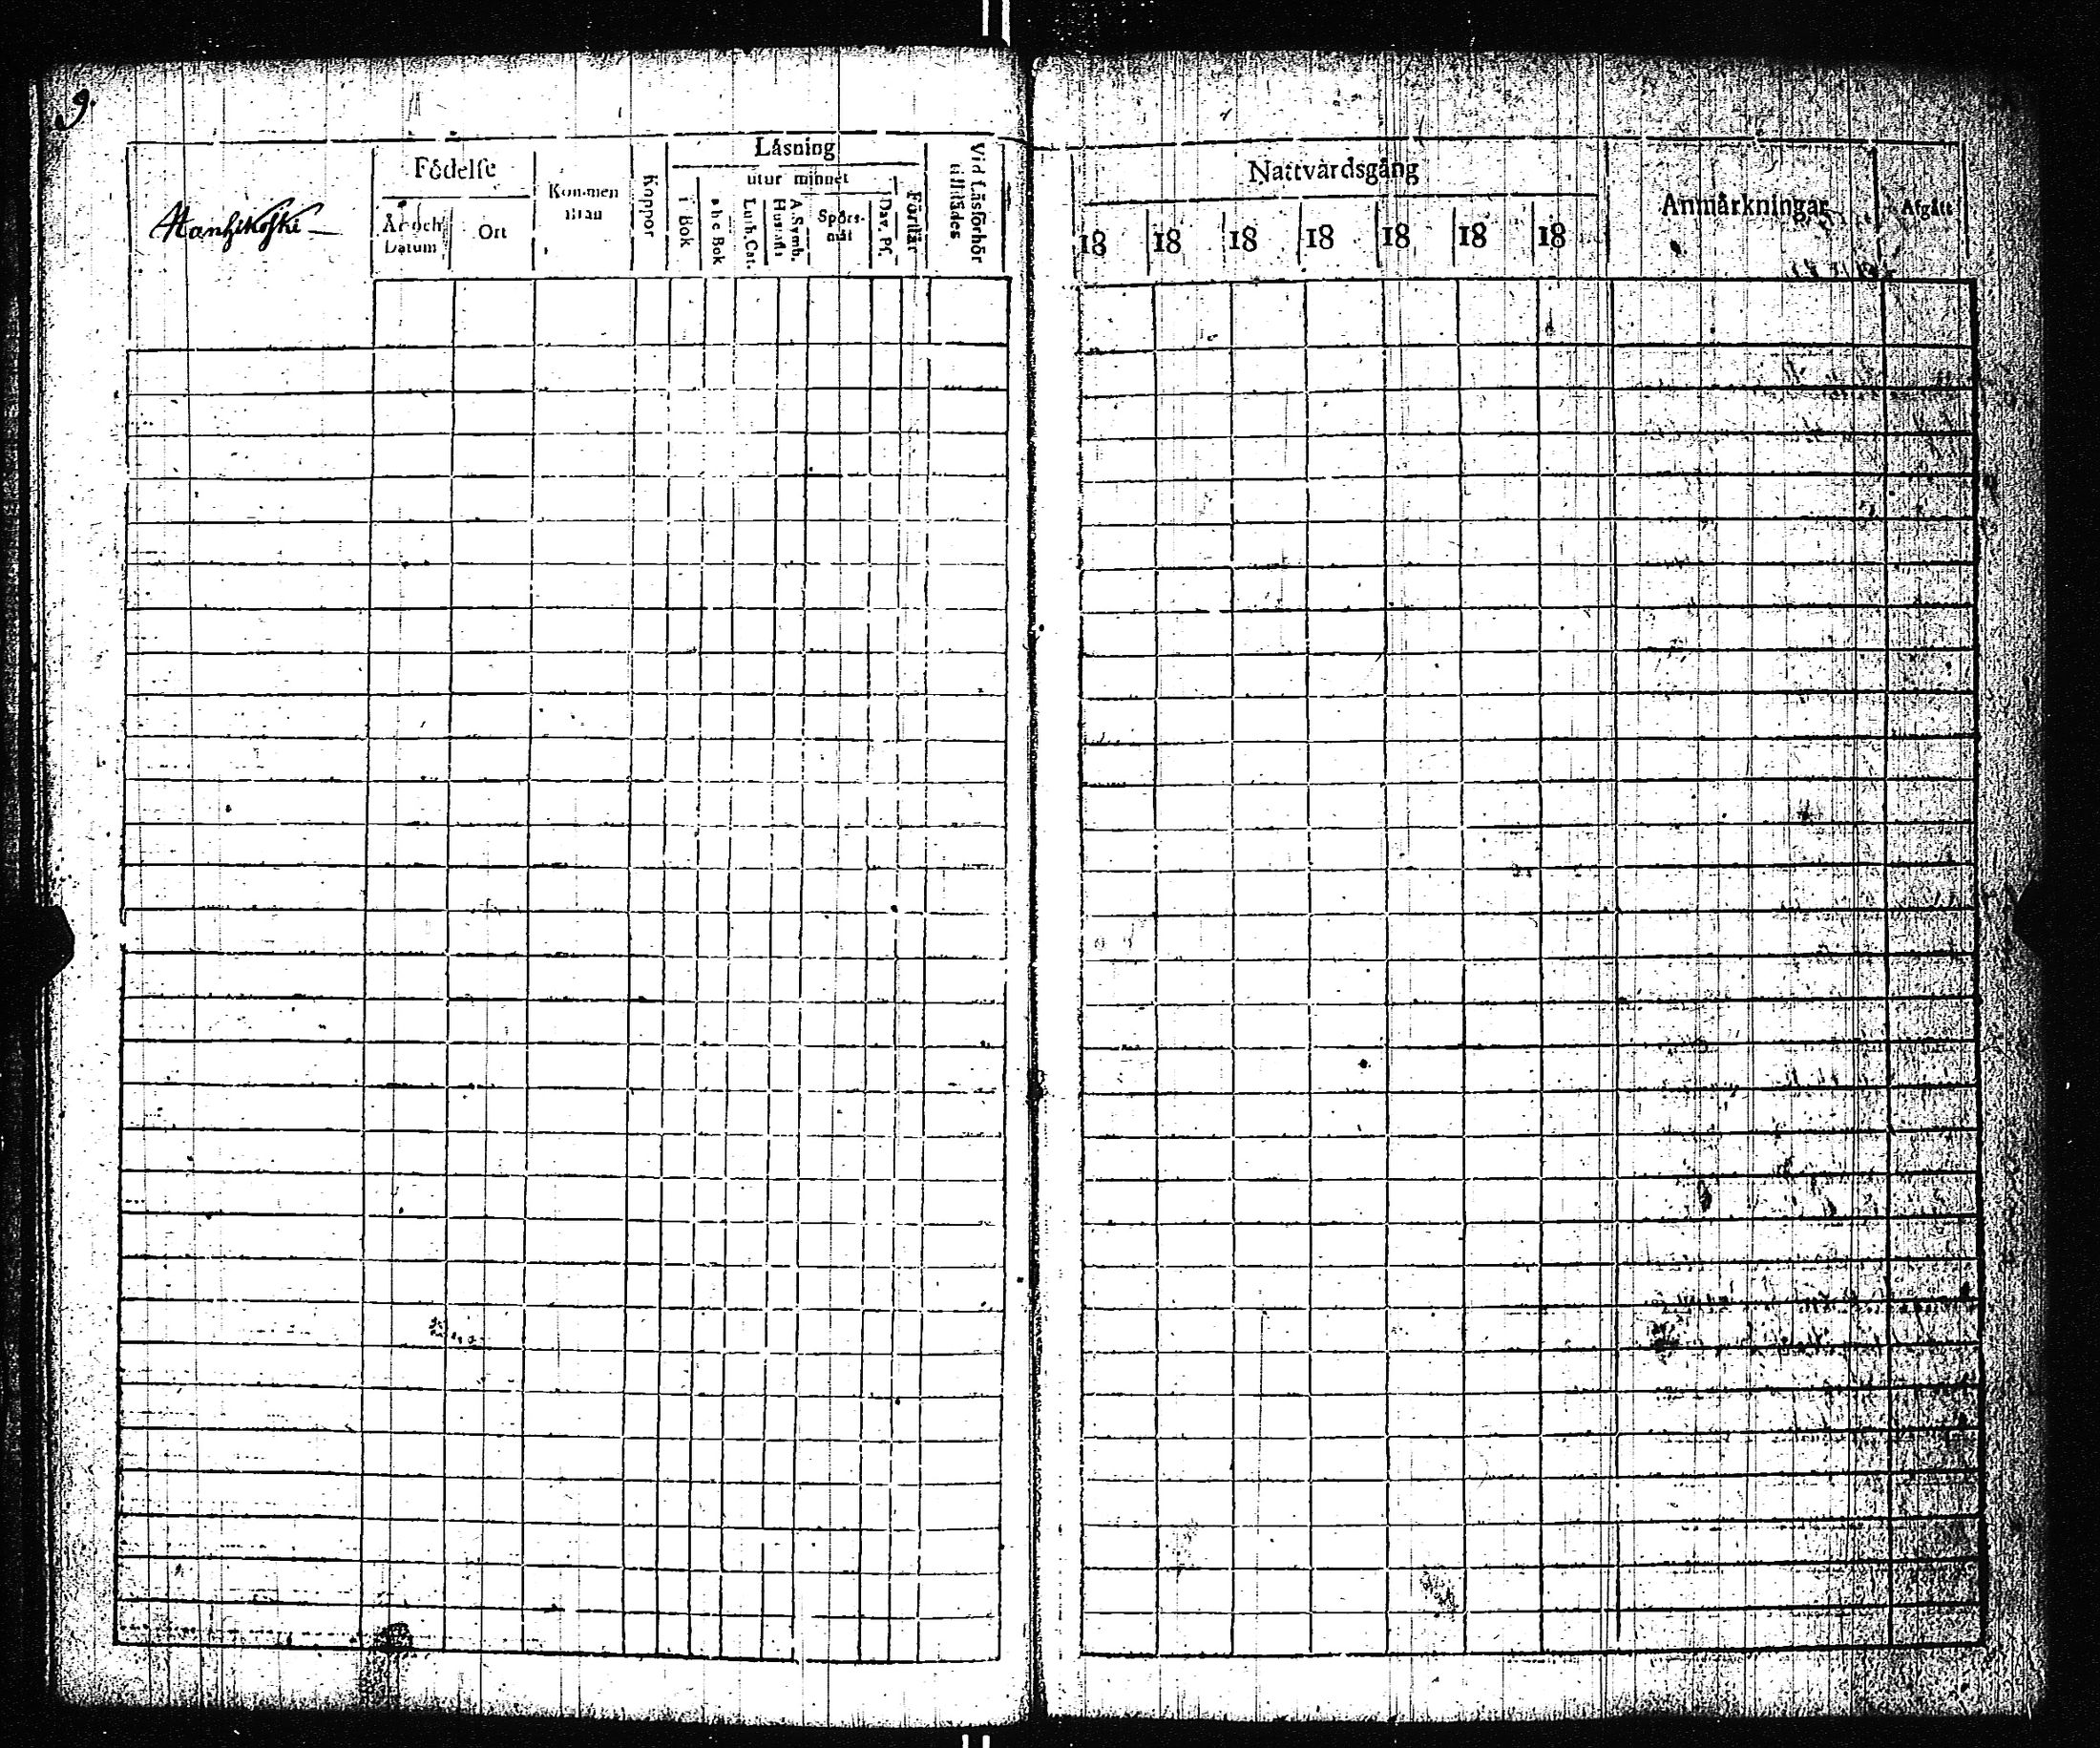 9.
Hanhikoski
Födelse
År och Datum
Ort
Kommen ifrån
Koppor
Läsning
i Bok
utur minnet
a b c Bok
Luth. Cat.
Hustafl.
A. Symb.
Spörs-mål
Dav. Ps.
Förstår
Vid Läsförhör tillstädes
Nattvardsgång
18 18 18 18 18 18 18
Anmärkningar
Afgått